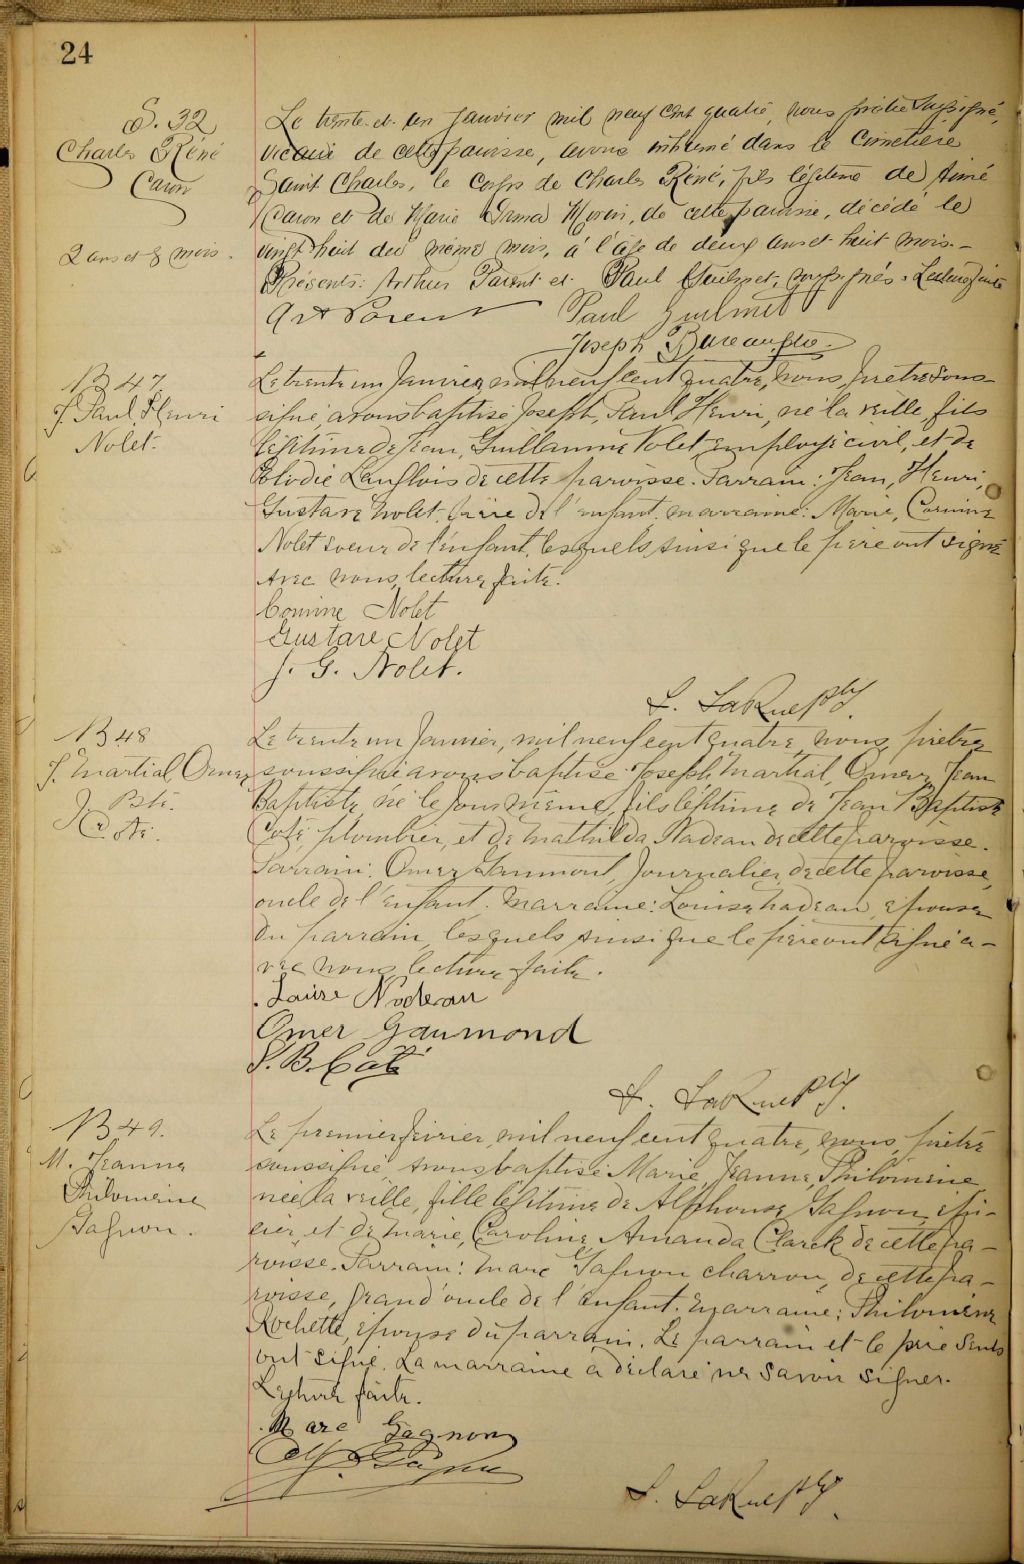 24
S. 32
Charles René
Caron
2 ans et 8 mois.
Le trente-et-un Janvier mil neuf cent quatre, nous prêtre soussigné,
vicaire de cette paroisse, avons inhumé dans le cimetière
Saint Charles, le corps de Charles René, fils légitime de Aimé
Caron et de Marie Irma Morin, de cette paroisse, décédé le
vingt-huit du même mois, à l'âge de deux ans et huit mois.-
Présents: Arthur Parent et Paul Guilmet, soussignés. Lecture faite
Art Parent Paul Guilmet
Joseph
B 47.
J. Paul, Henri
Nolet.
Le trente un Janvier, mil neuf cent quatre, nous, prêtre sous-
signé, avons baptisé Joseph, Paul Henri, né la veille, fils
légitime de Jean, Guillaume Nolet employé civil, et de
Elodie Langlois de cette paroisse. Parrain: Jean, Henri,
Gustave Nolet, frère de l'enfant, marraine: Marie, Corinne
Nolet soeur de l'enfant, lesquels ainsi que le père ont signé
avec nous, lecture faite.
Corinne Nolet
Gustave Nolet
J. G. Nolet.
L. LaRue ptr.
B 48
J. Martial, Omer,
J. Bte.
Coté.
Le trente un Janvier, mil neuf cent quatre, nous, prêtre
soussigné avons baptisé Joseph, Martial, Omer, Jean
Baptiste, né le jour même, fils légitime de Jean Baptiste
Coté, plombier, et de Mathilda Nadeau de cette paroisse.
Parrain: Omer Gaumont, Journalier, de cette paroisse,
oncle de l'enfant. Marraine: Louise Nadeau, épouse
du parrain, lesquels ainsi que le père ont signé a-
vec nous, lecture faite.
Louise Nadeau
Omer Gaumond
J. B. Coté
L. LaRue ptr.
B 49.
M. Jeanne
Philomène
Gagnon.
Le premier février, mil neuf cent quatre, nous, prêtre
soussigné avons baptisé Marie, Jeanne, Philomène
née la veille, fille légitime de Alphonse Gagnon, épi-
cier, et de Marie, Caroline, Amanda Clarck de cette pa-
roisse. Parrain: Marc Gagnon charron, de cette pa-
roisse, grand'oncle de l'enfant. Marraine: Philomène
Rochette, épouse du parrain. Le parrain et le père seuls
ont signé. La marraine a déclaré ne savoir signer.
Lecture faite.
Marc Gagnon
Alp. Gagnon
L. LaRue ptr.